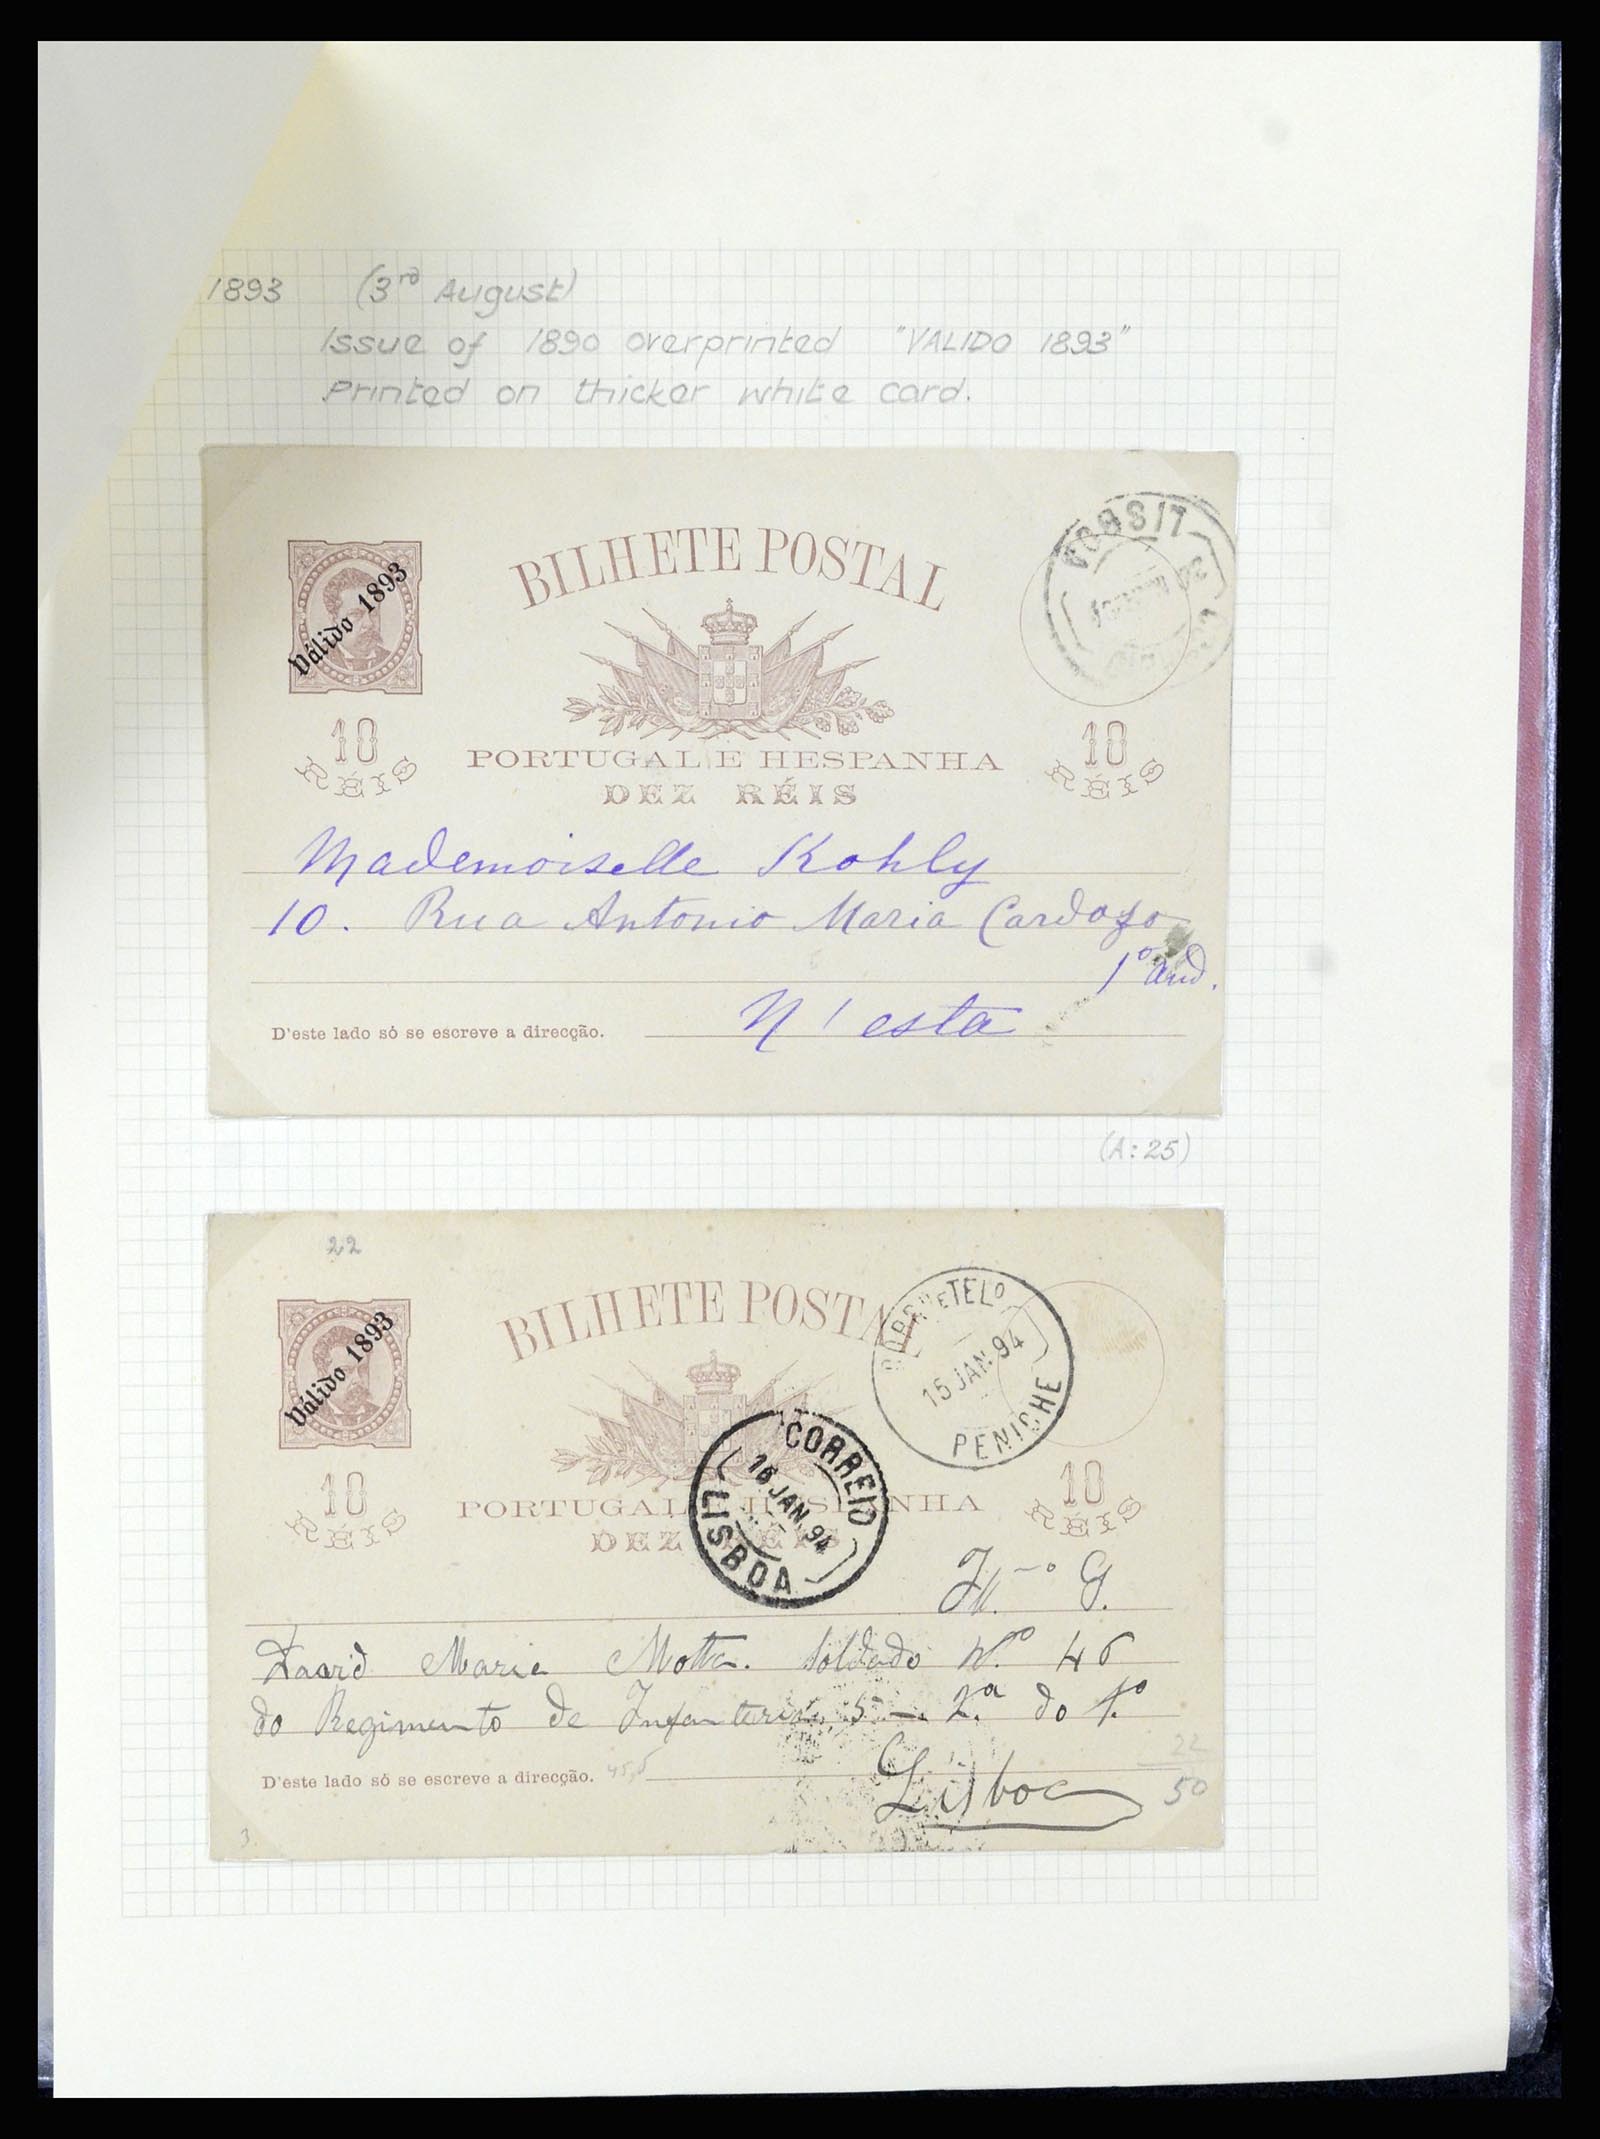 1893 (3rd August)
Issue of 1890 overprinted "VALIDO 1893"
Printed on thicker white card.
Válido 1893
BILHETE POSTAL
LISBOA
10
RÉIS
PORTUGAL E HESPANHA
10
RÉIS
DEZ RÉIS
Mademoiselle Kohly
10. Rua Antonio Maria Cardozo
1º and.
N'esta
D'este lado só se escreve a direcção.
(A:25)
22
Válido 1893
BILHETE POSTAL
CORRº E TELº
15 JAN. 94
PENICHE
CORREIO
16 JAN. 94
LISBOA
10
RÉIS
PORTUGAL E HESPANHA
10
RÉIS
DEZ RÉIS
Maria Motta. Soldado Nº 46
do Regimento de Infanteria 5 - 2ª do 1º
22
D'este lado só se escreve a direcção.
Lisboa
50
3